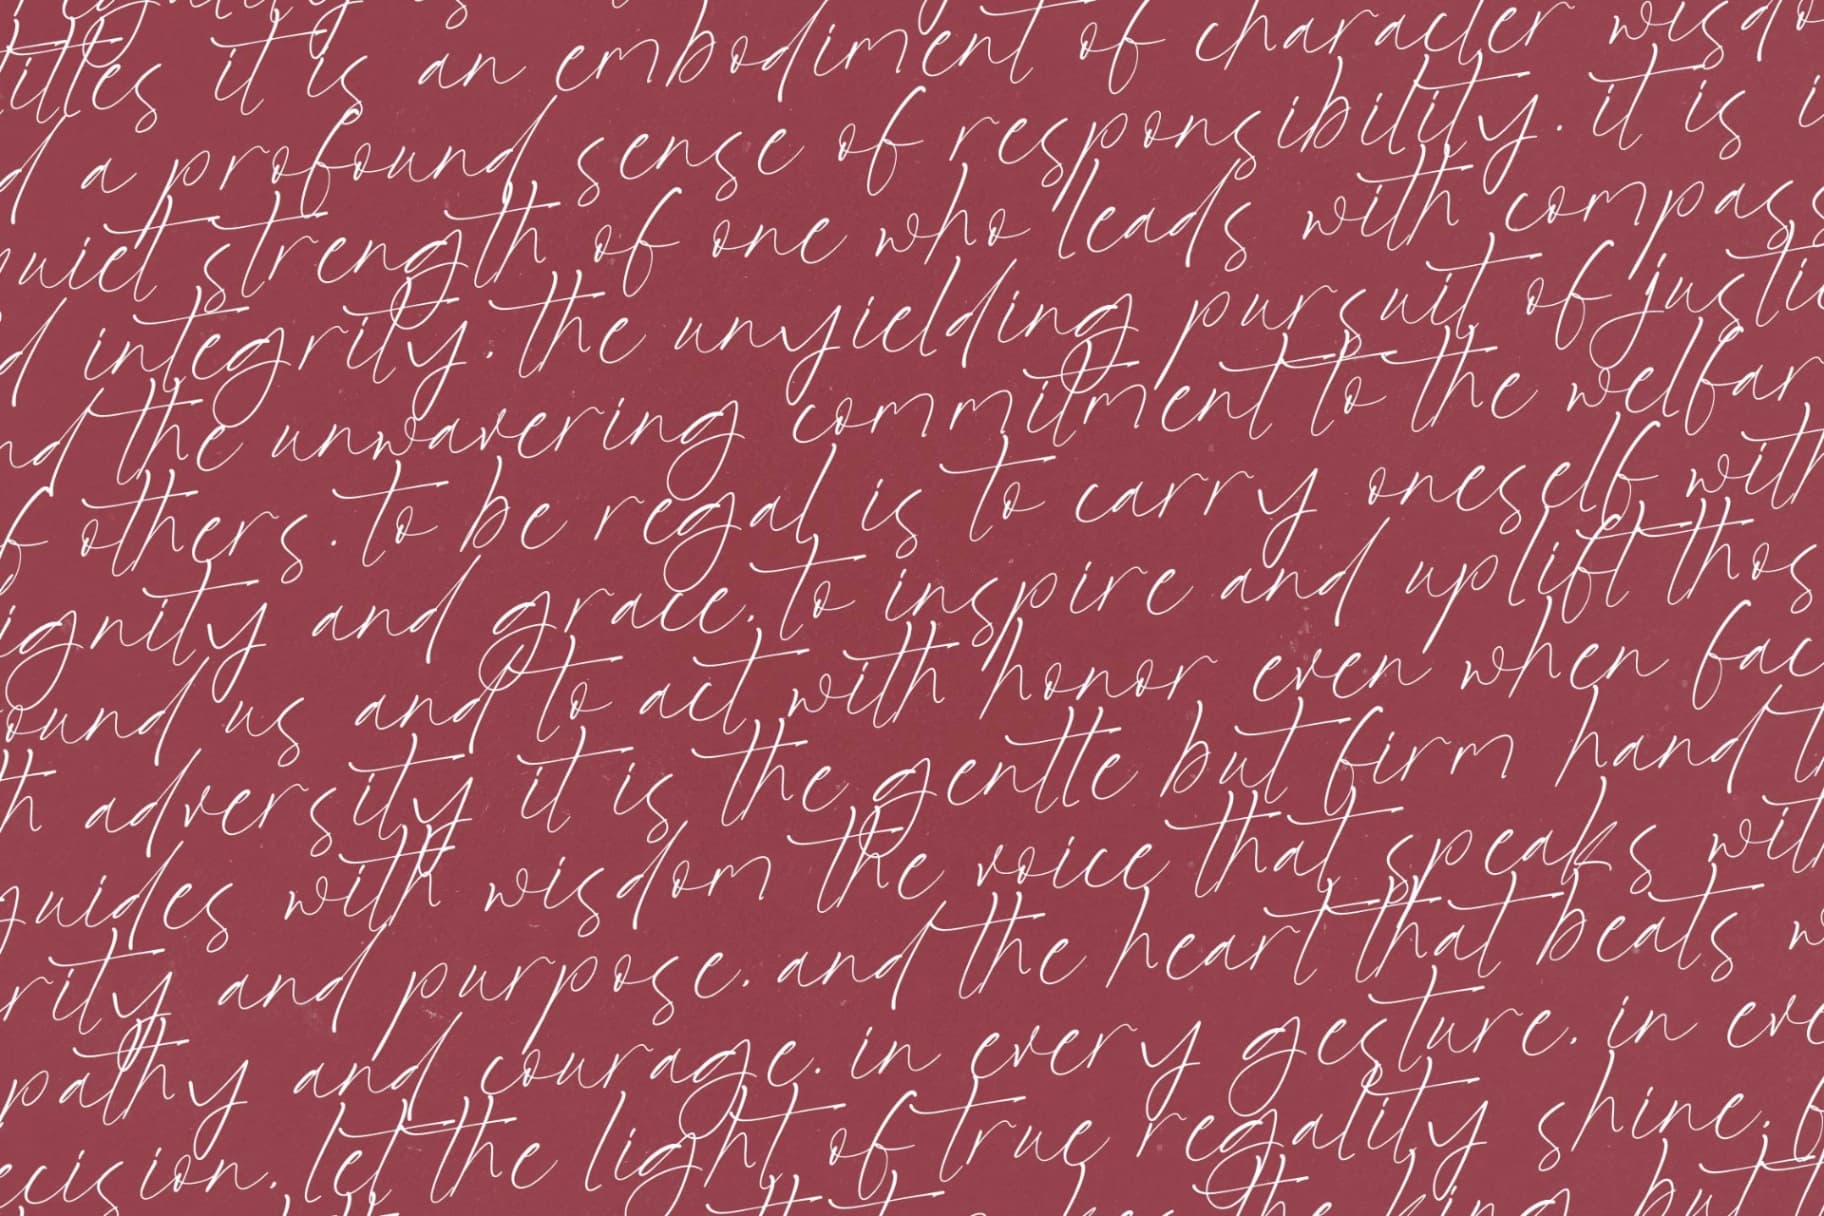 regality is
titles it is an embodiment of character wisdo
d a profound sense of responsibility. it is i
quiet strength of one who leads with compass
d integrity. the unyielding pursuit of justic
nd the unwavering commitment to the welfar
f others. to be regal is to carry oneself with
ignity and grace. to inspire and uplift thos
ound us and to act with honor even when fac
th adversity it is the gentle but firm hand t
guides with wisdom the voice that speaks with
rity and purpose. and the heart that beats w
pathy and courage. in every gesture. in eve
ecision. let the light of true regality shine. f
the king but t